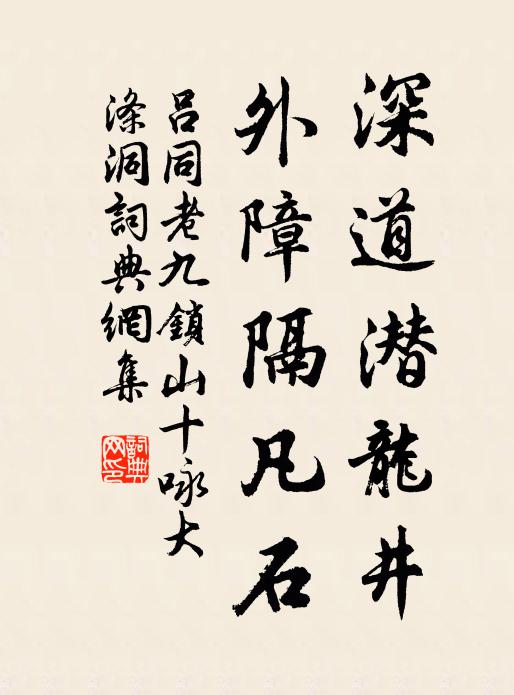 深道潜龍井
外障隔凡石
吕同老九鎖山十咏大
滌洞詞典網集
詞典
网印